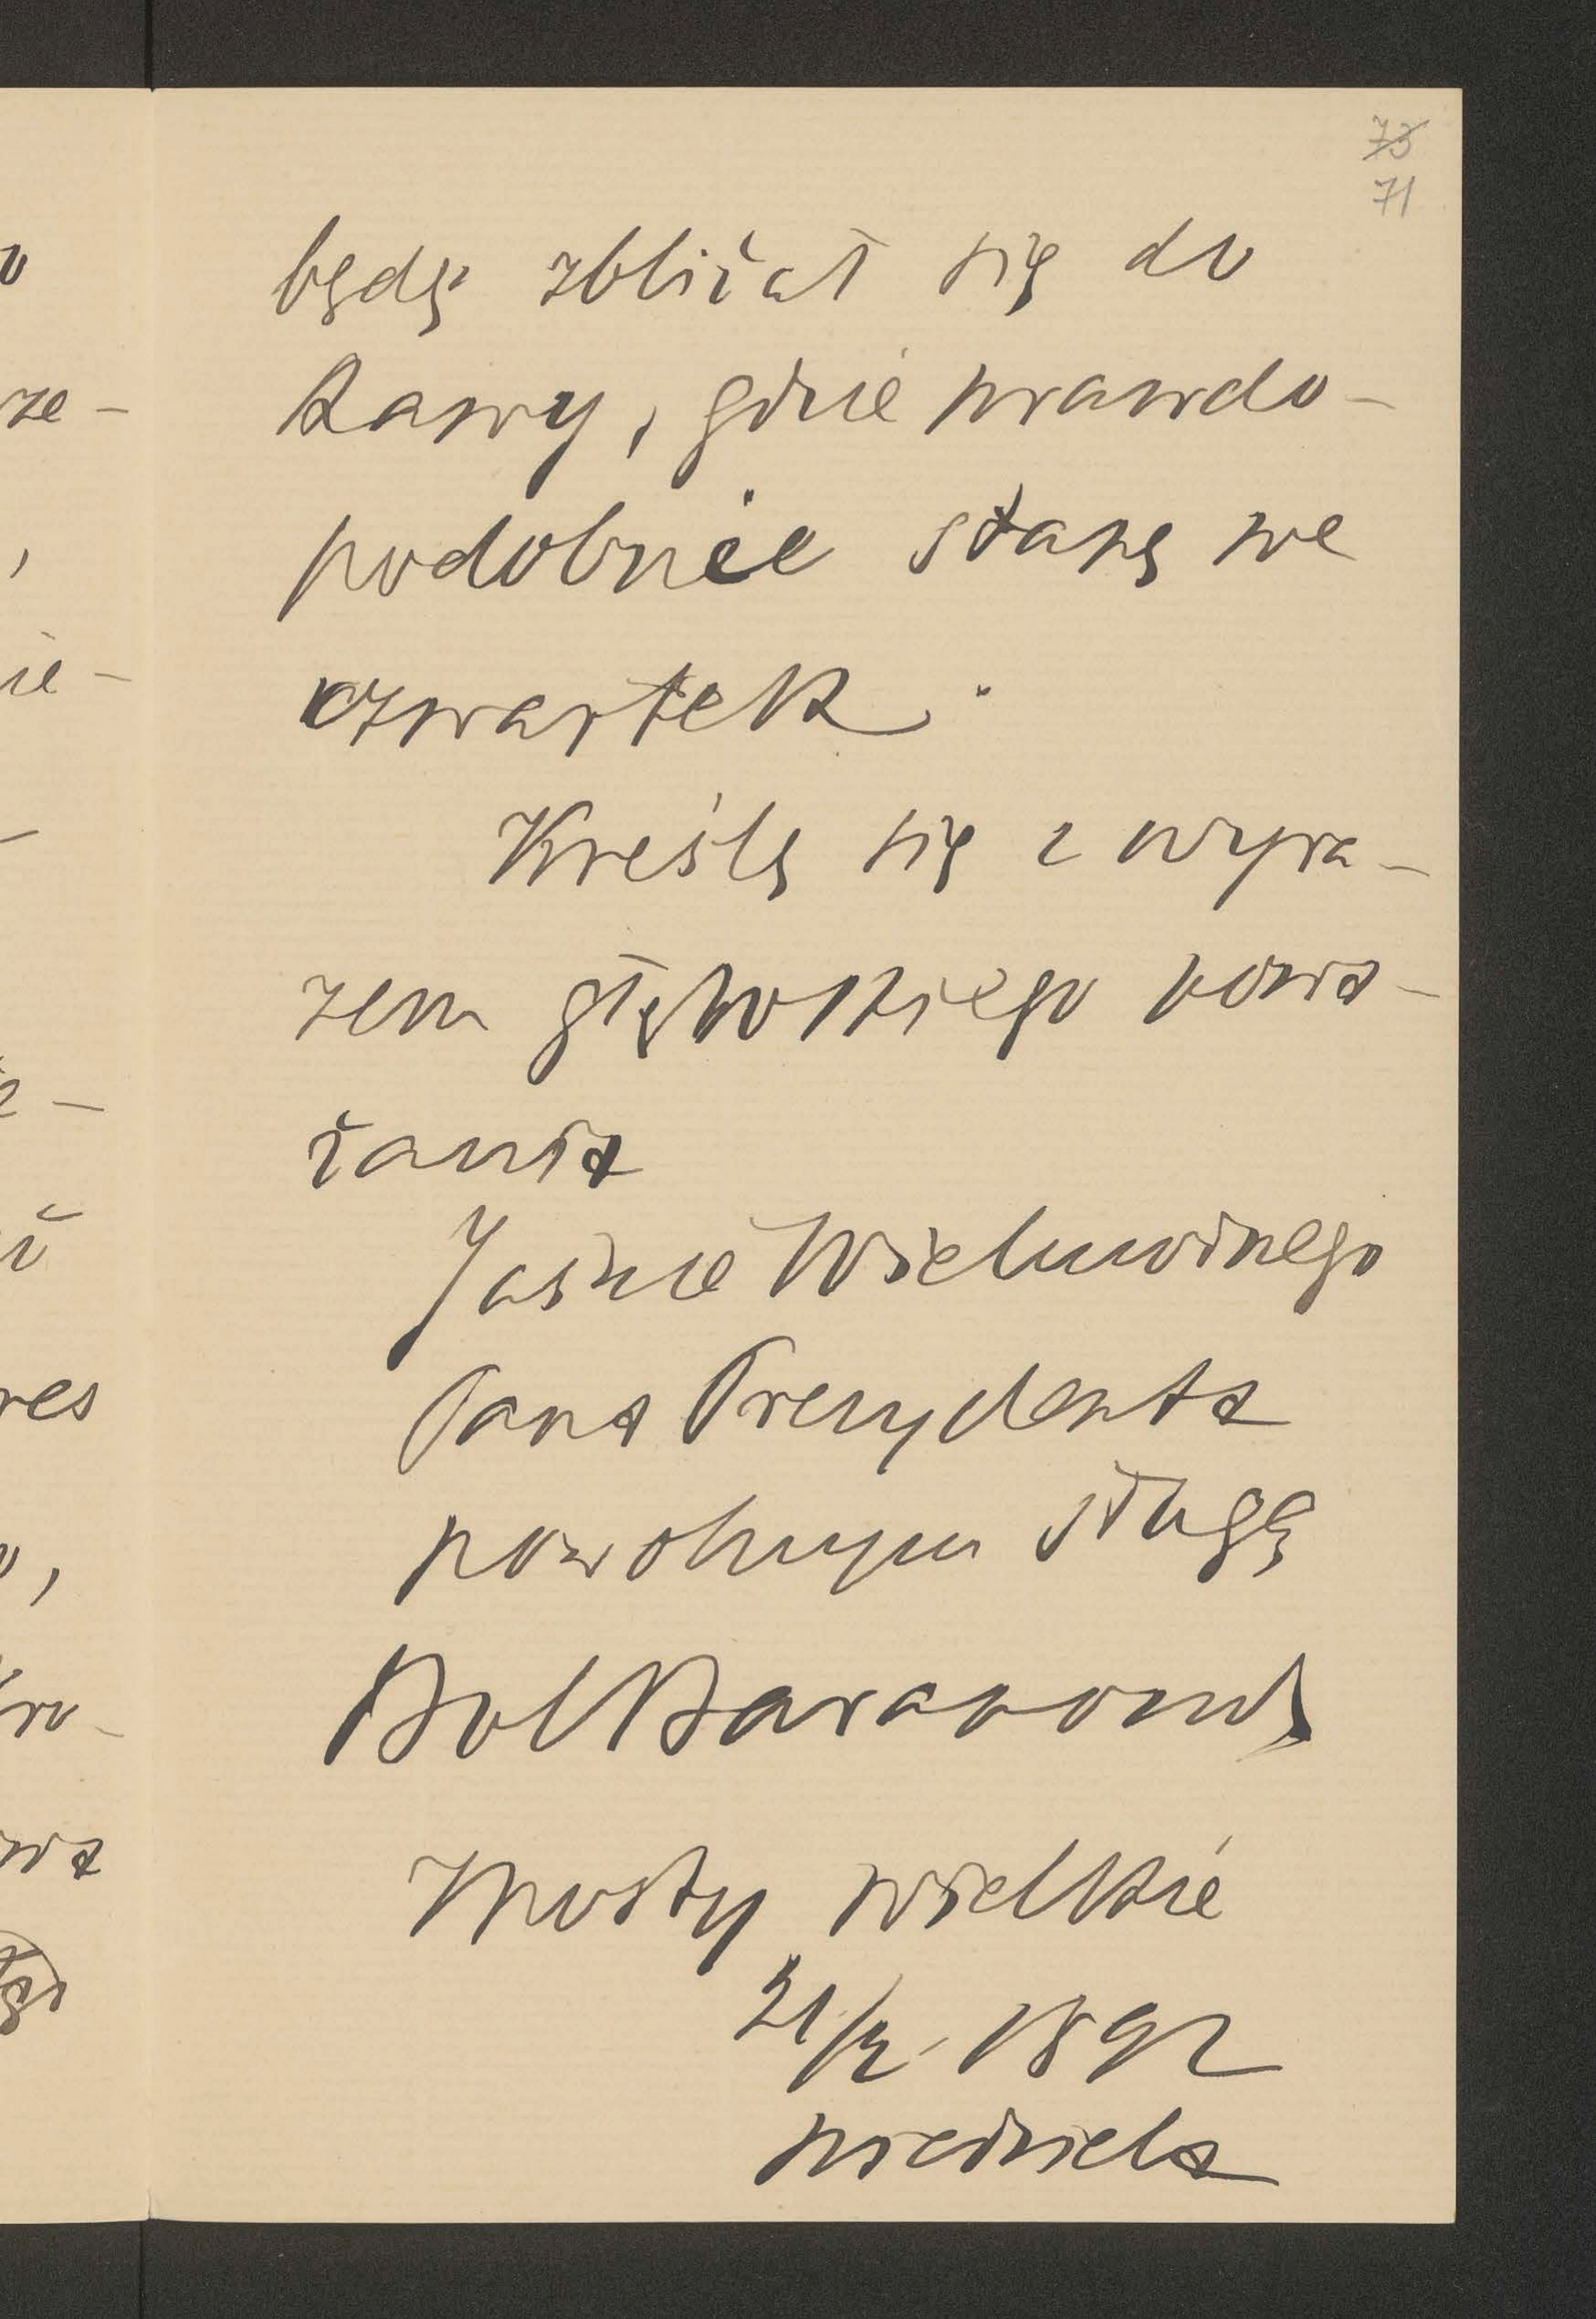 73
71
będę zbliżał się do
Rawy, gdzie prawdo-
podobnie stanę we
czwartek.
Kreślę się z wyra-
zem głębokiego powa-
żania
Jaśnie Wielmożnego
Pana Prezydenta
powolnym sługą
Mosty wielkie
21/2. 1892
niedziela